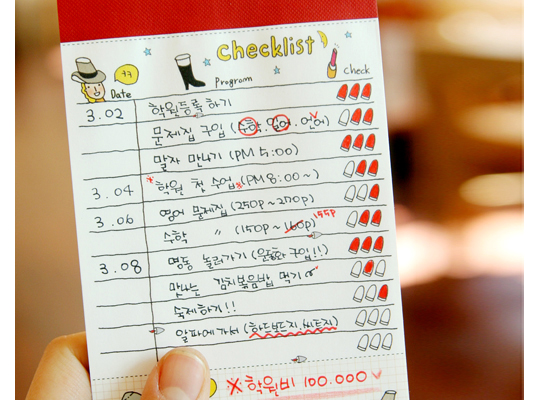 Checklist
Date Program Check
3.02 학원등록 하기
문제집 구입 (수학, 일어, 언어)
말자 만나기 (PM 5:00)
3.04 *학원 첫 수업* (PM 8:00~)
3.06 영어 문제집 (250p~270p)
수학 〃 (150p~160p) 155p
3.08 명동 놀러가기 (운동화 구입!!)
맛나는 김치볶음밥 먹기
숙제하기!!
알파에 가서 (하드보드지, 시트지)
※ 학원비 100.000